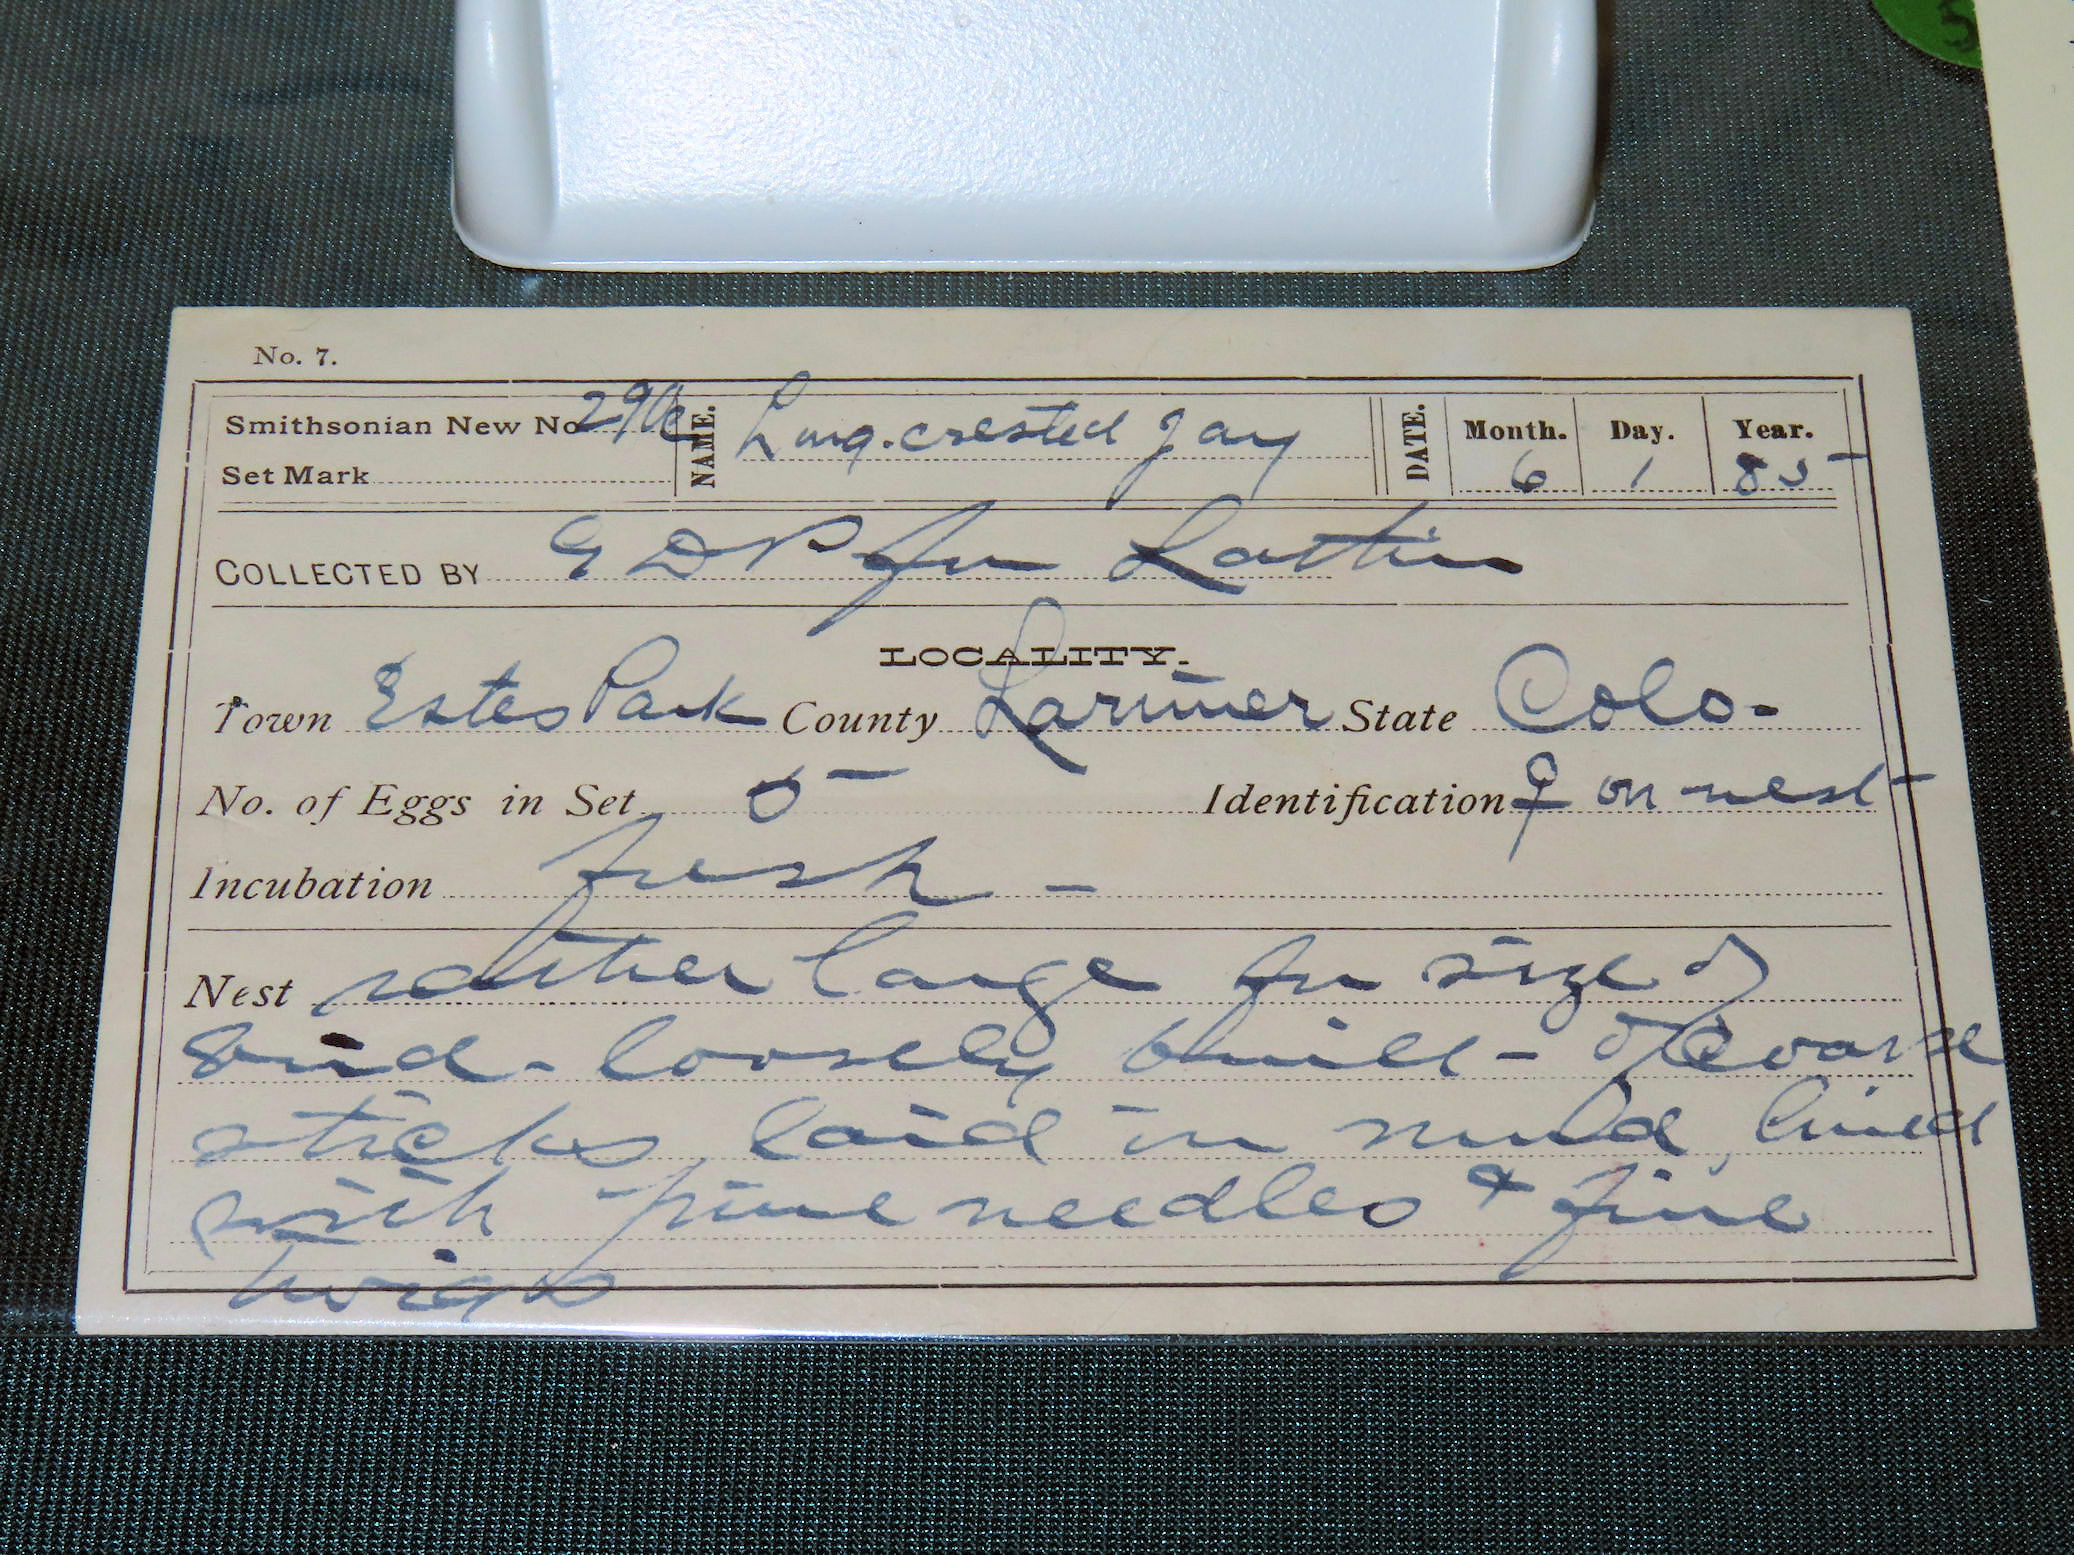 No. 7.
Smithsonian New No. NAME. Long-crested Jay DATE. Month. Day. Year.
Set Mark 6 1 85
COLLECTED BY G D P for Lattin
LOCALITY.
Town Estes Park County Larimer State Colo-
No. of Eggs in Set 5 Identification ♀ on nest
Incubation fresh -
Nest rather large for size of
bird - loosely built - of coarse
sticks laid in mud, lined
with pine needles & fine
twigs